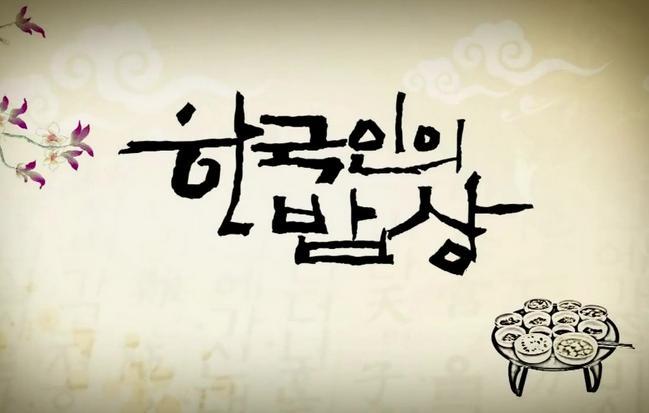 한국인의
밥상